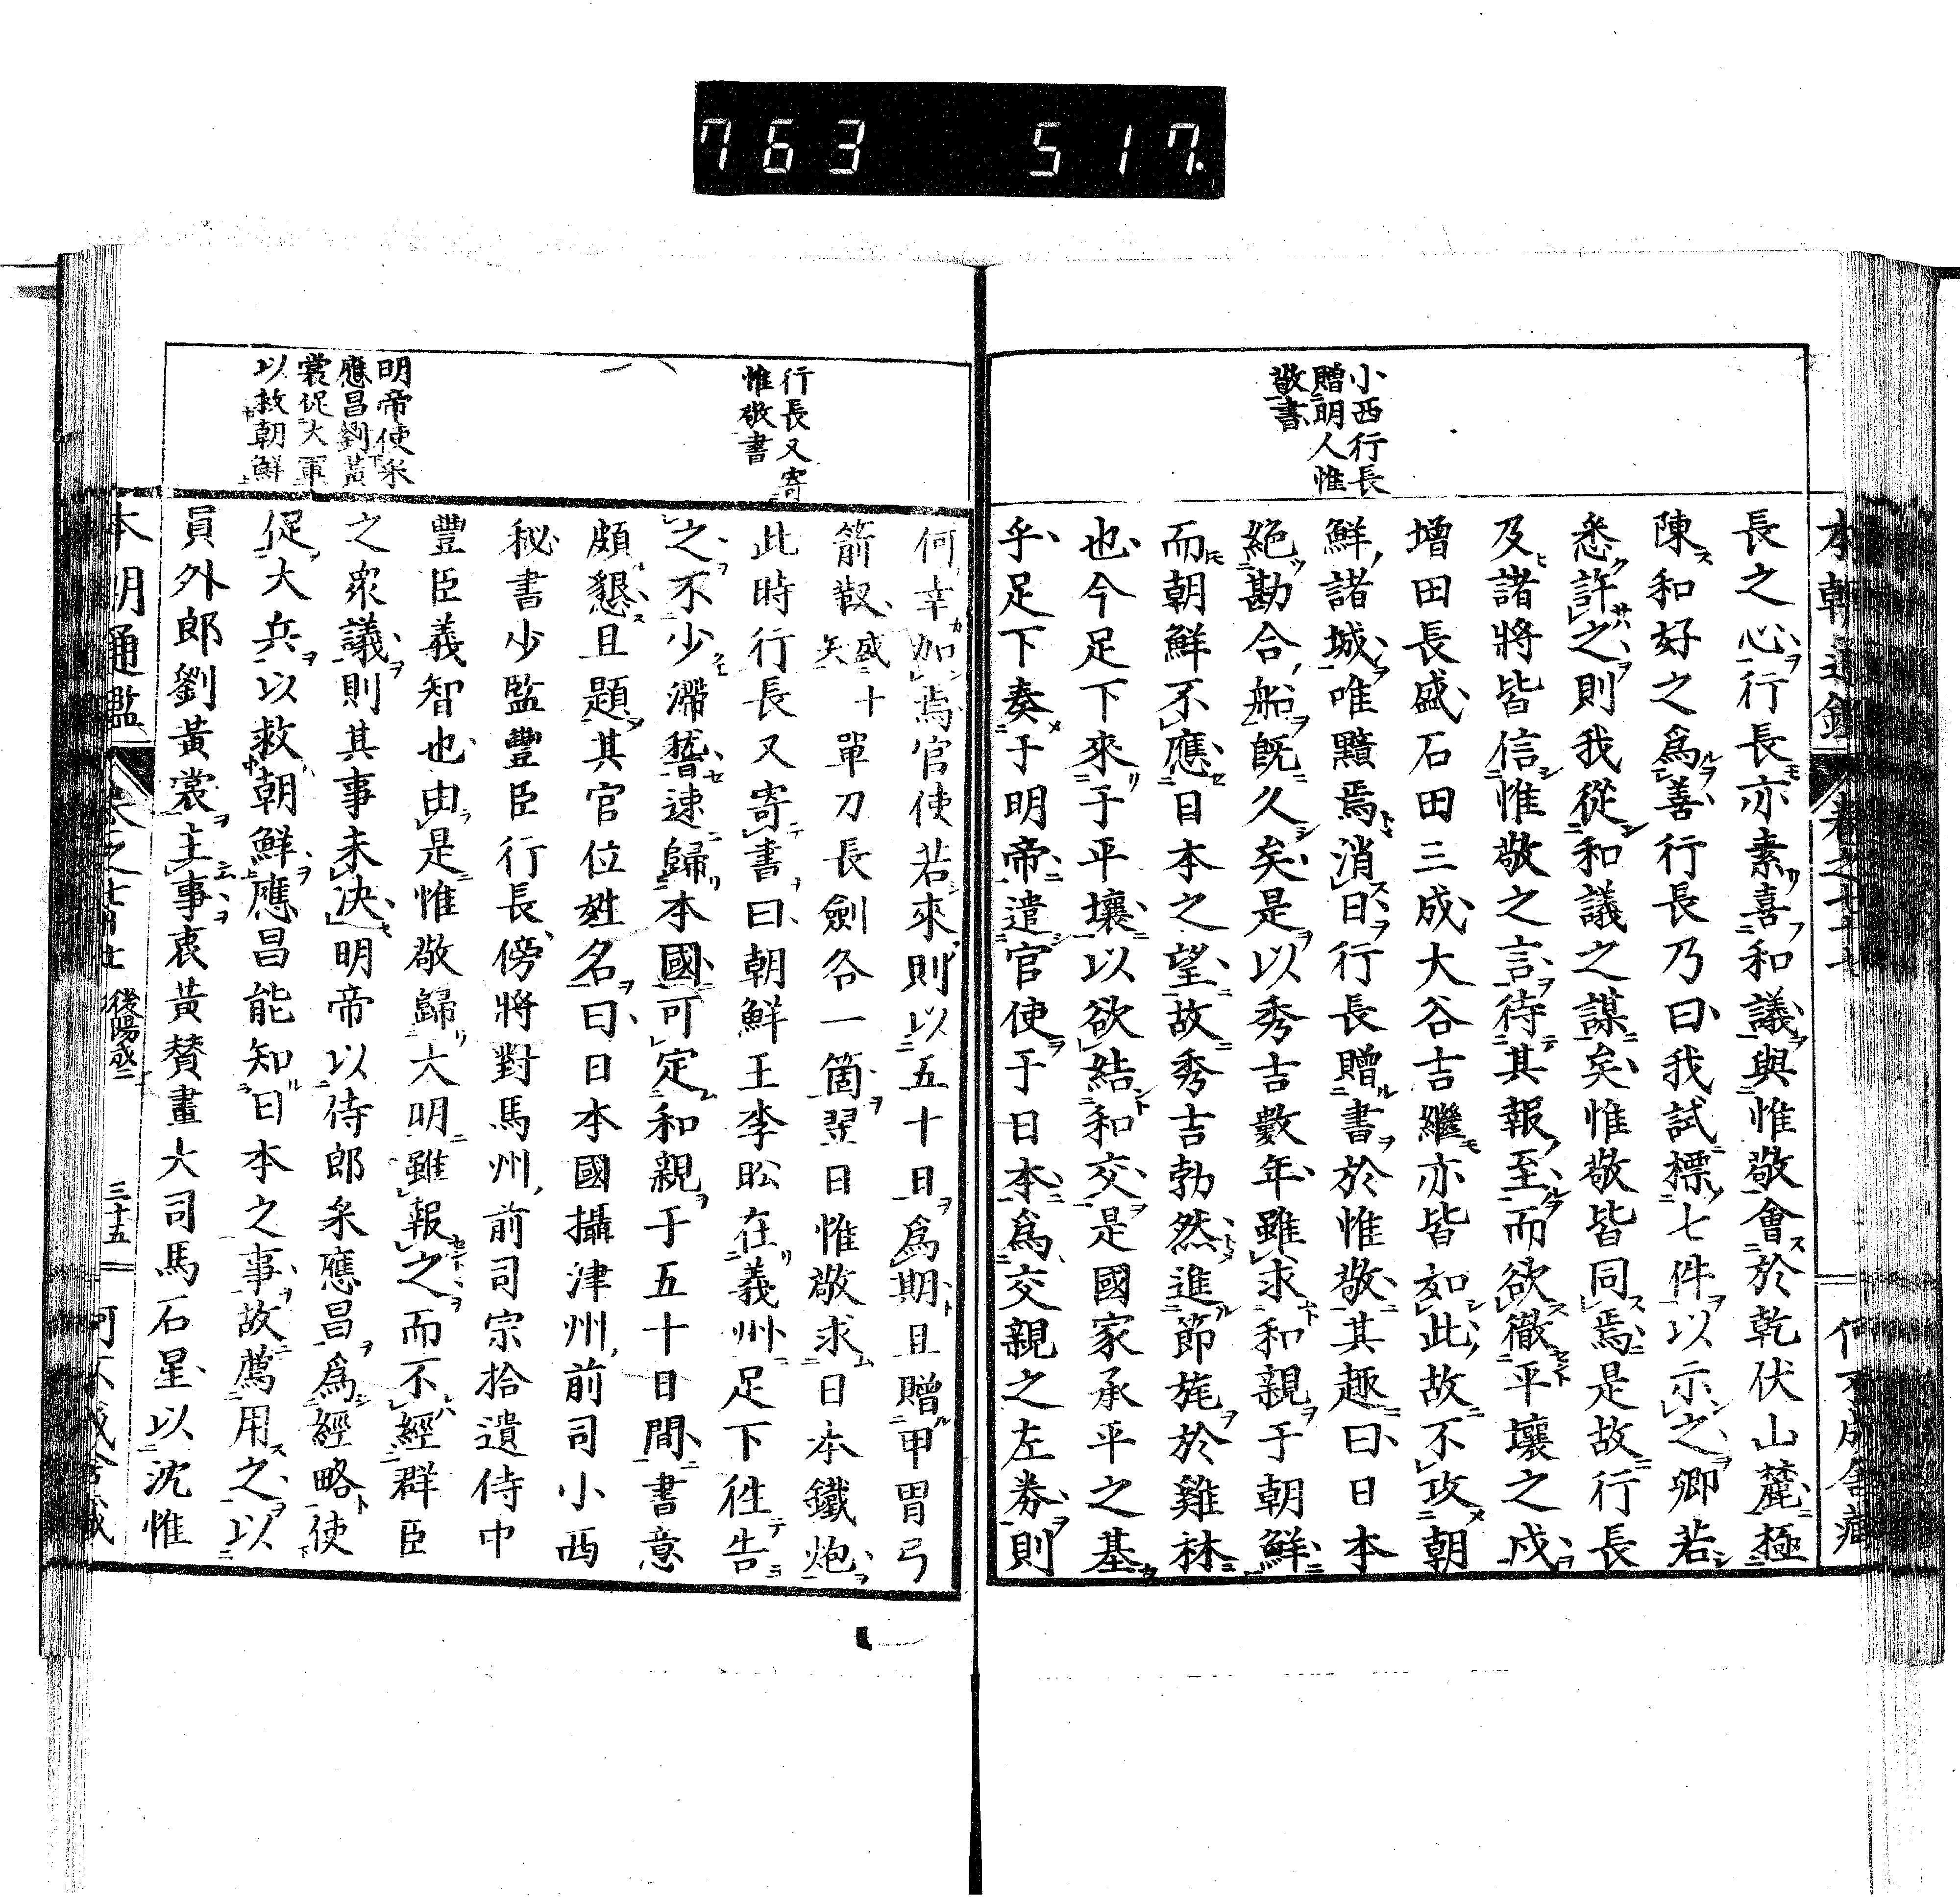 763 517.
小西行長
贈明人惟
敬書
長之心行長亦素喜和議與惟敬會於乾伏山麓極
陳和好之爲善行長乃曰我試標七件以示之卿若
悉許之則我從和議之謀矣惟敬皆同焉是故行長
及諸將皆信惟敬之言待其報至而欲徹平壤之戍
增田長盛石田三成大谷吉繼亦皆如此故不攻朝
鮮諸城唯黷焉消日行長贈書於惟敬其趣曰日本
絕勘合船既久矣是以秀吉數年雖求和親于朝鮮
而朝鮮不應日本之望故秀吉勃然進節旄於雞林
也今足下來于平壤以欲結和交是國家承平之基
乎足下奏于明帝遣官使于日本爲交親之左券則
行長又寄
惟敬書
明帝使宋
應昌劉黃
裳促大軍
以救朝鮮
何幸加焉官使若來則以五十日爲期且贈甲冑弓
箭靫盛十矢單刀長劍各一箇翌日惟敬求日本鐵炮
此時行長又寄書曰朝鮮王李昖在義州足下往告
之不少滯嵆速歸本國可定和親于五十日間書意
頗懇且題其官位姓名曰日本國攝津州前司小西
秘書少監豐臣行長傍將對馬州前司宗拾遺侍中
豐臣義智也由是惟敬歸大明雖報之而不經群臣
之衆議則其事未決明帝以侍郎宋應昌爲經略使
促大兵以救朝鮮應昌能知日本之事故薦用之以
員外郎劉黃裳主事袁黃贊畫大司馬石星以沈惟
本朝通鑑
後陽成二
三十五